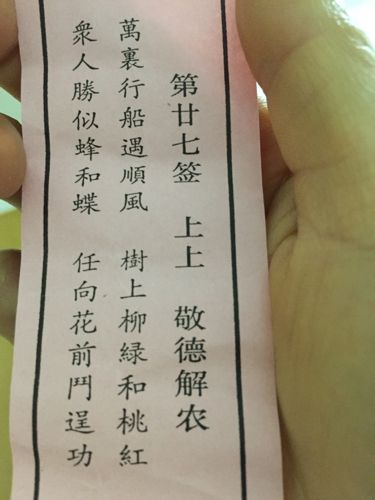 第廿七签 上上 敬德解农
萬裏行船遇順風 樹上柳緑和桃紅
衆人勝似蜂和蝶 任向花前鬥逞功